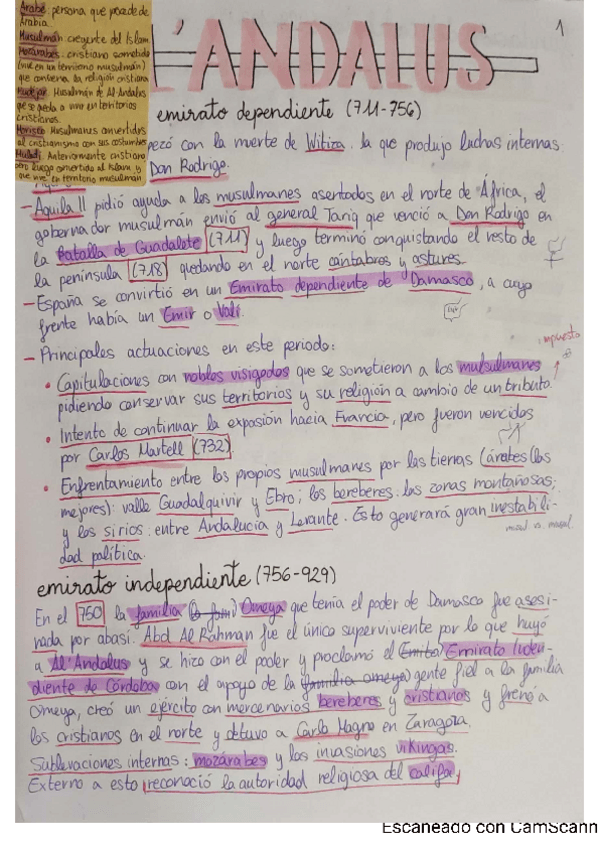 Arabe: persona que procede de
Arabia.
Musulmán: creyente del Islam.
Mozárabes: cristiano sometido
(vive en un territorio musulmán)
que conserva la religión cristiana
Mudéjar: Musulmán de Al-Andalus
que se queda a vivir en territorios
cristianos.
Morisco: Musulmanes convertidos
al cristianismo con sus costumbres
Muladí: Anteriormente cristiano
pero luego convertido al Islam y
que vive en territorio musulmán
1
L'ANDALUS
emirato dependiente (711-756)
pezó con la muerte de Witiza, la que produjo luchas internas
Don Rodrigo.
- Aquila II pidió ayuda a los musulmanes asentados en el norte de África, el
gobernador musulmán envió al general Tariq que venció a Don Rodrigo en
la Batalla de Guadalete (711) y luego terminó conquistando el resto de
la península (718) quedando en el norte cántabros y astures.
- España se convirtió en un Emirato dependiente de Damasco, a cuyo
frente había un Emir o Valí.
- Principales actuaciones en este periodo:
impuesto
• Capitulaciones con nobles visigodos que se sometieron a los mulsulmanes
pidiendo conservar sus territorios y su religión a cambio de un tributo.
• Intento de continuar la expasión hacia Francia, pero fueron vencidos
por Carlos Martell (732)
• Enfrentamiento entre los propios musulmanes por las tierras (árabes (las
mejores): valle Guadalquivir y Ebro; los bereberes: las zonas montañosas;
y los sirios: entre Andalucía y Levante. Esto generará gran inestabili-
musul. vs. musul.
dad política.
emirato independiente (756-929)
En el 750 la familia Omeya que tenía el poder de Damasco fue asesi-
nada por abasí. Abd Al Rahman fue el único superviviente por lo que huyó
a Al'Andalus y se hizo con el poder y proclamó el Emirato Inden-
diente de Córdoba con el apoyo de la (familia omeya) gente fiel a la familia
Omeya, creó un ejército con mercenarios bereberes y cristianos y frenó a
los cristianos en el norte y detuvo a Carlo Magno en Zaragoza.
Sublevaciones internas: mozárabes y las invasiones vikingas.
Externo a esto reconoció la autoridad religiosa del califa.
Escaneado con CamScann